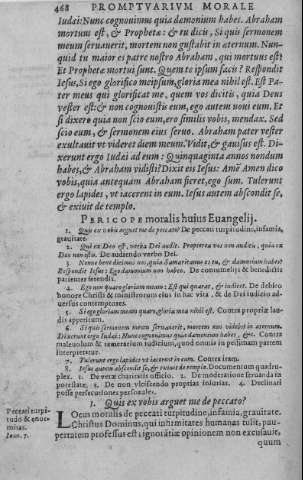 468 PROMPTVARIVM MORALE
Iudai: Nunc cognouimus quia damonium habes. Abraham
mortuus est, & Propheta: & tu dicis, Si quis sermonem
meum seruauerit, mortem non gustabit in aternum. Nun-
quid tu maior es patre nostro Abraham, qui mortuus est?
Et Propheta mortui sunt. Quem te ipsum facis? Respondit
Iesus, Si ego glorifico meipsum, gloria mea nihil est. Est Pa-
ter meus qui glorificat me, quem vos dicitis, quia Deus
vester est: & non cognouistis eum, ego autem noui eum. Et
si dixero quia non scio eum, ero similis vobis, mendax. Sed
scio eum, & sermonem eius seruo. Abraham pater vester
exultauit vt videret diem meum. Vidit, & gausus est. Di-
xerunt ergo Iudai ad eum: Quinquaginta annos nondum
habes, & Abraham vidisti? Dixit eis Iesus: Amē Amen dico
vobis, quia antequam Abraham fieret, ego sum. Tulerunt
ergo lapides, vt iacerent in eum. Iesus autem abscondit se,
& exiuit de templo.
PERICOPE moralis huius Euangelij.
1. Quis ex vobis arguet me de peccato? De peccati turpitudine, infamia,
grauitate.
2. Qui ex Deo est, verba Dei audit. Propterea vos non auditis, quia ex
Deo non estis. De audiendo verbo Dei.
3. Nonne bene dicimus nos, quia Samaritanus es tu, & damonium habes?
Respondit Iesus: Ego damonium non habeo. De contumelijs & benedictis
patienter ferendis.
4. Ego non quaro gloriam meam: Est qui quarat, & iudicet. De debito
honore Christi & ministrorum eius in hac vita, & de Dei iudicio ad-
uersus contemptores.
5. Si ego glorifico meam quaro gloria mea nihil est. Contra propriæ lau-
dis appetitum.
6. Si quis sermonem meum seruauerit, mortem non videbit in aternum.
Dixerunt ergo Iudai: Nunc cognouimus quia damonium habes, &c. Contra
maleuolum & temerarium iudicium, quod omnia in pessimam partem
interpretatur.
7. Tulerunt ergo lapides vt iacerent in eum. Contra iram.
8. Iesus autem abscondit se, & exiuit de templo. Documentum quadru-
plex. 1. De veræ charitatis officio. 2. De moderatione seruanda in
potestate. 3. De non vlciscendo proprias iniurias. 4. Declinari
posse persecutiones personales.
1. Quis ex vobis arguet me de peccato?
Peccati turpi-
tudo & enor-
mitas.
Ioan. 7.
Locus moralis de peccati turpitudine, infamia, grauitate.
Christus Dominus, qui infirmitates humanas tulit, pau-
pertatem professus est ignorātiæ opinionem non excusauit,
quum